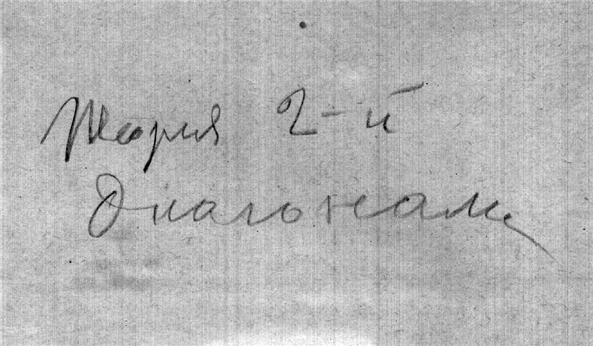 Теория 2-й
Диагонали